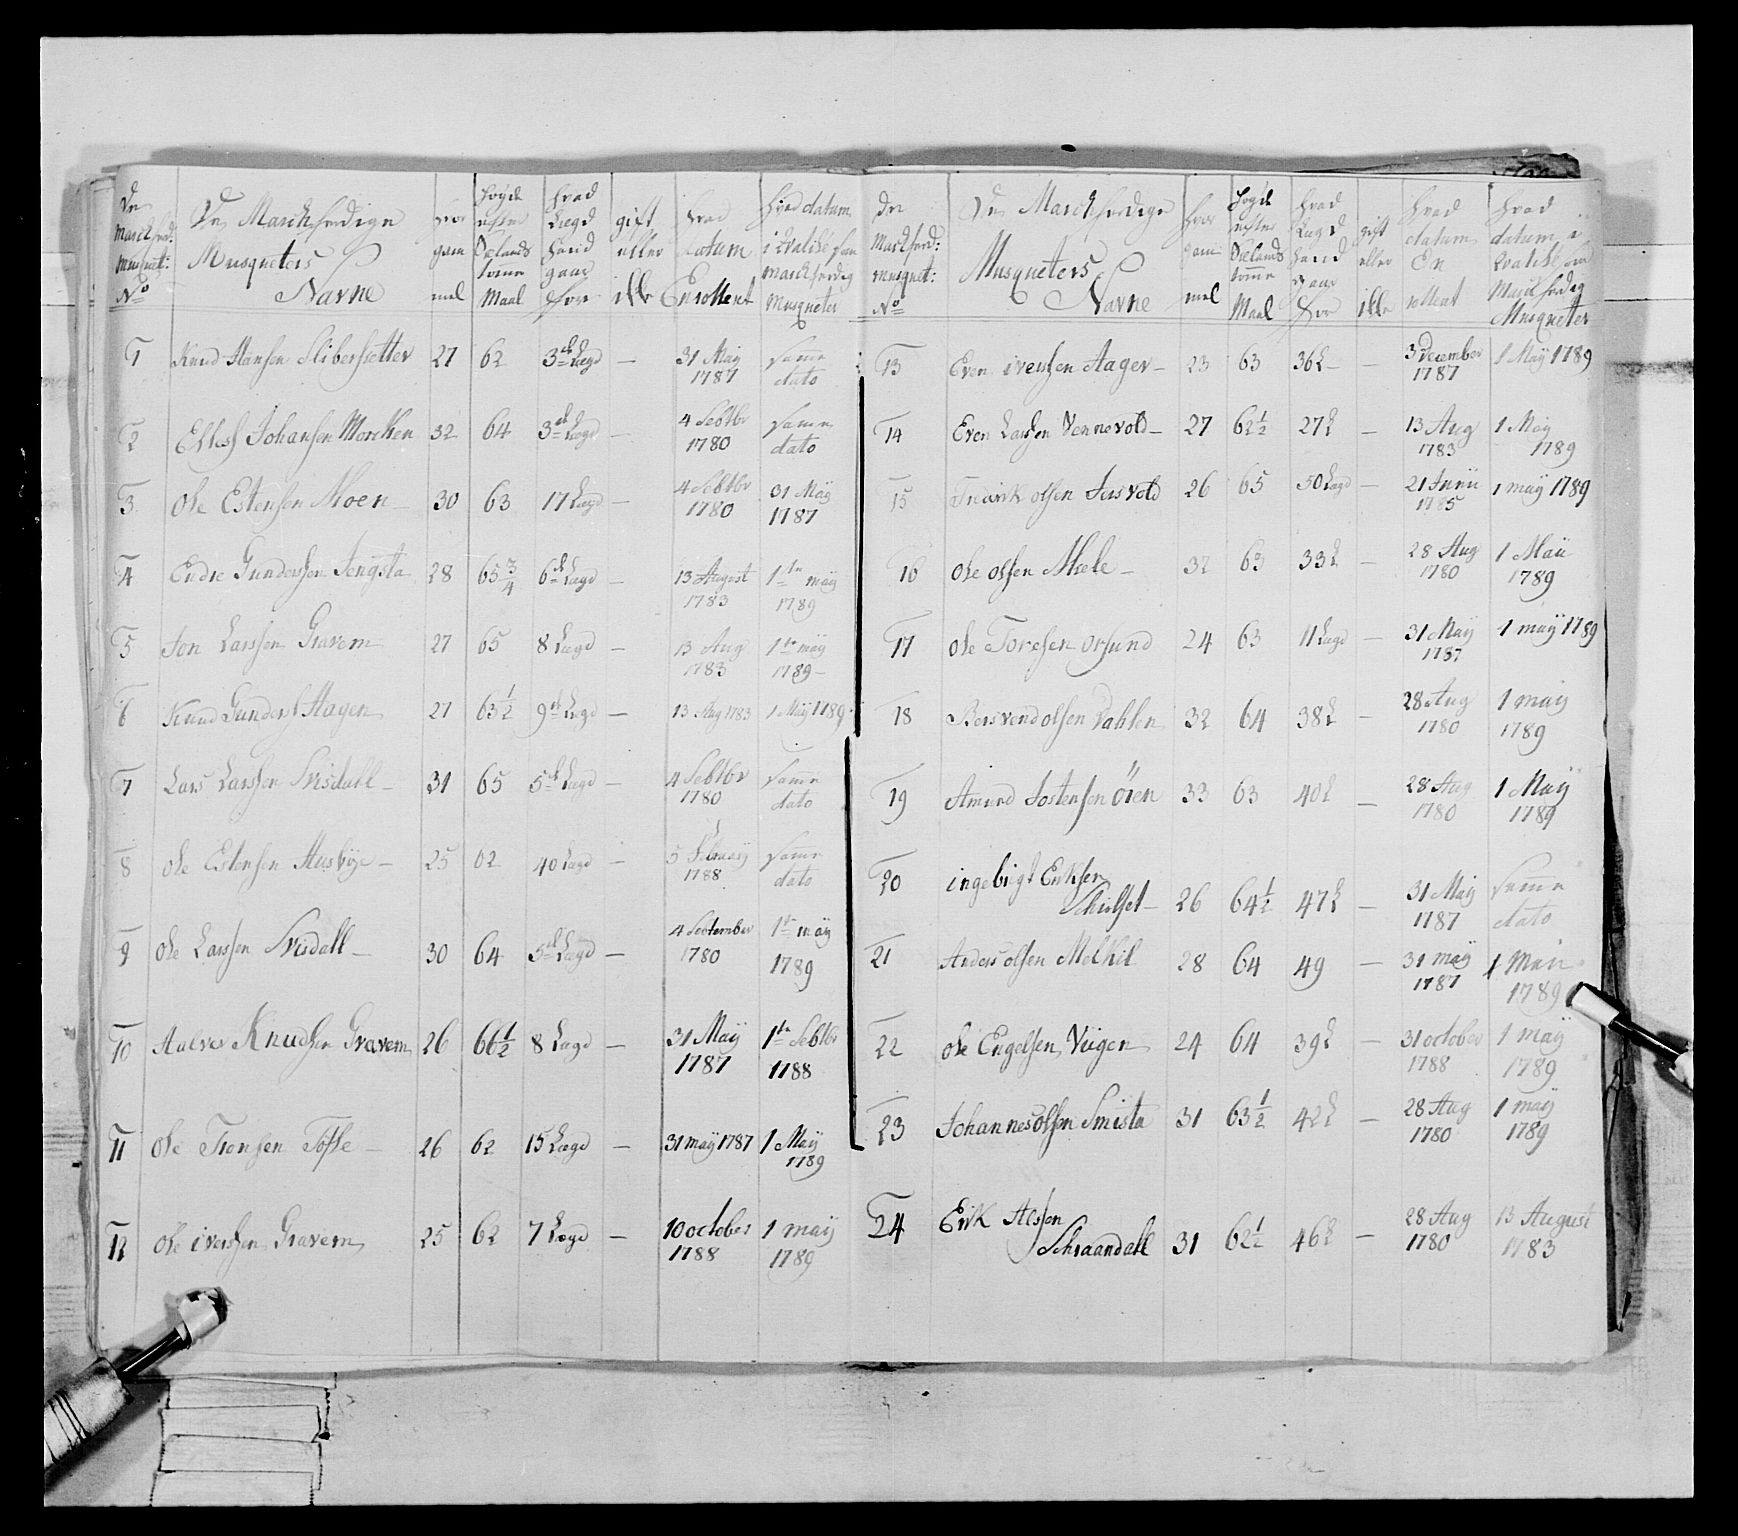 De Marchferd: Musquet: No | De Marchferdige Musqueters Navne | hvor gam mel | Høyde efter Siælands tomme Maal | hvad Lægd hand gaar for | gift eller ikke | hvad datum Enrollert | hvad datum i qvalitè som marchferdig Musqueter
1 Knud Hansen Slibersætter 27 62 3de Lægd — 31 May 1787 samme dato
2 Johansen Morcken 32 64 3de Lægd — 4 Sebtbr 1780 samme dato
3 Ole Estensen Moen 30 63 17 Lægd — 4 Sebtbr 1780 31 May 1787
4 Endre Gundersen Jengsta 28 65 3/4 6te Lægd — 13 August 1783 1ste may 1789
5 Jon Larssen Gravem 27 65 8 Lægd — 13 Aug 1783 1ste may 1789
6 Knud Hagen 27 63 1/2 9de Lægd — 13 Aug 1783 1 May 1789
7 Lars Larssen Snisdall 31 65 5te Lægd — 4 Sebtbr 1780 samme dato
8 Ole Estensen Husbye 25 62 40 Lægd — 5 Februarij 1788 samme dato
9 Ole Larssen Snisdall 30 64 5te Lægd — 4 September 1780 1ste may 1789
10 Knudsen Gravem 26 66 1/2 8 Lægd — 31 May 1787 1ste Sebtbr 1788
11 Ole Tronsen Tofte 26 62 15 Lægd — 31 may 1787 1 May 1789
12 Ole iverssen Gravem 25 62 7 Lægd — 10 october 1788 1 may 1789
De Marchferd: musquet: No | De Marchferdige Musqueters Navne | hvor gam mel | Høyde efter Siælands tomme Maal | hvad Lægd hand gaar for | gift eller ikke | hvad datum En rollert | hvad datum i qvalitè som Marchferdig Musqueter
13 Even iverssen Aager 23 63 36 L — 3 December 1787 1 May 1789
14 Even Larssen Vennevold 27 62 1/2 27 L — 13 Aug 1783 1 May 1789
15 olsen 26 65 50 Lægd — 21 Junii 1785 1 may 1789
16 Ole olsen 32 63 33 L — 28 Aug 1780 1 Maii 1789
17 Ole Toresen Orsund 24 63 11 Lægd — 31 May 1787 1 may 1789
18 Bersvend olsen Dahlen 32 64 38 L — 28 Aug 1780 1 may 1789
19 Amund Jostensen Öien 33 63 40 L — 28 Aug 1780 1 May 1789
20 ingebrigt Eriksen
26 64 1/2 47 L — 31 May 1787 samme dato
21 Anders olsen Melkil 28 64 49 — 31 may 1787 1 Maii 1789
22 Ole Engelsen Viigen 24 64 39 L — 31 october 1788 1 may 1789
23 Johannes olsen Smista 31 63 1/2 42 L — 28 Aug 1780 1 may 1789
24 Erik
Schraandall 31 62 1/2 46 L — 28 Aug 1780 13 August 1783